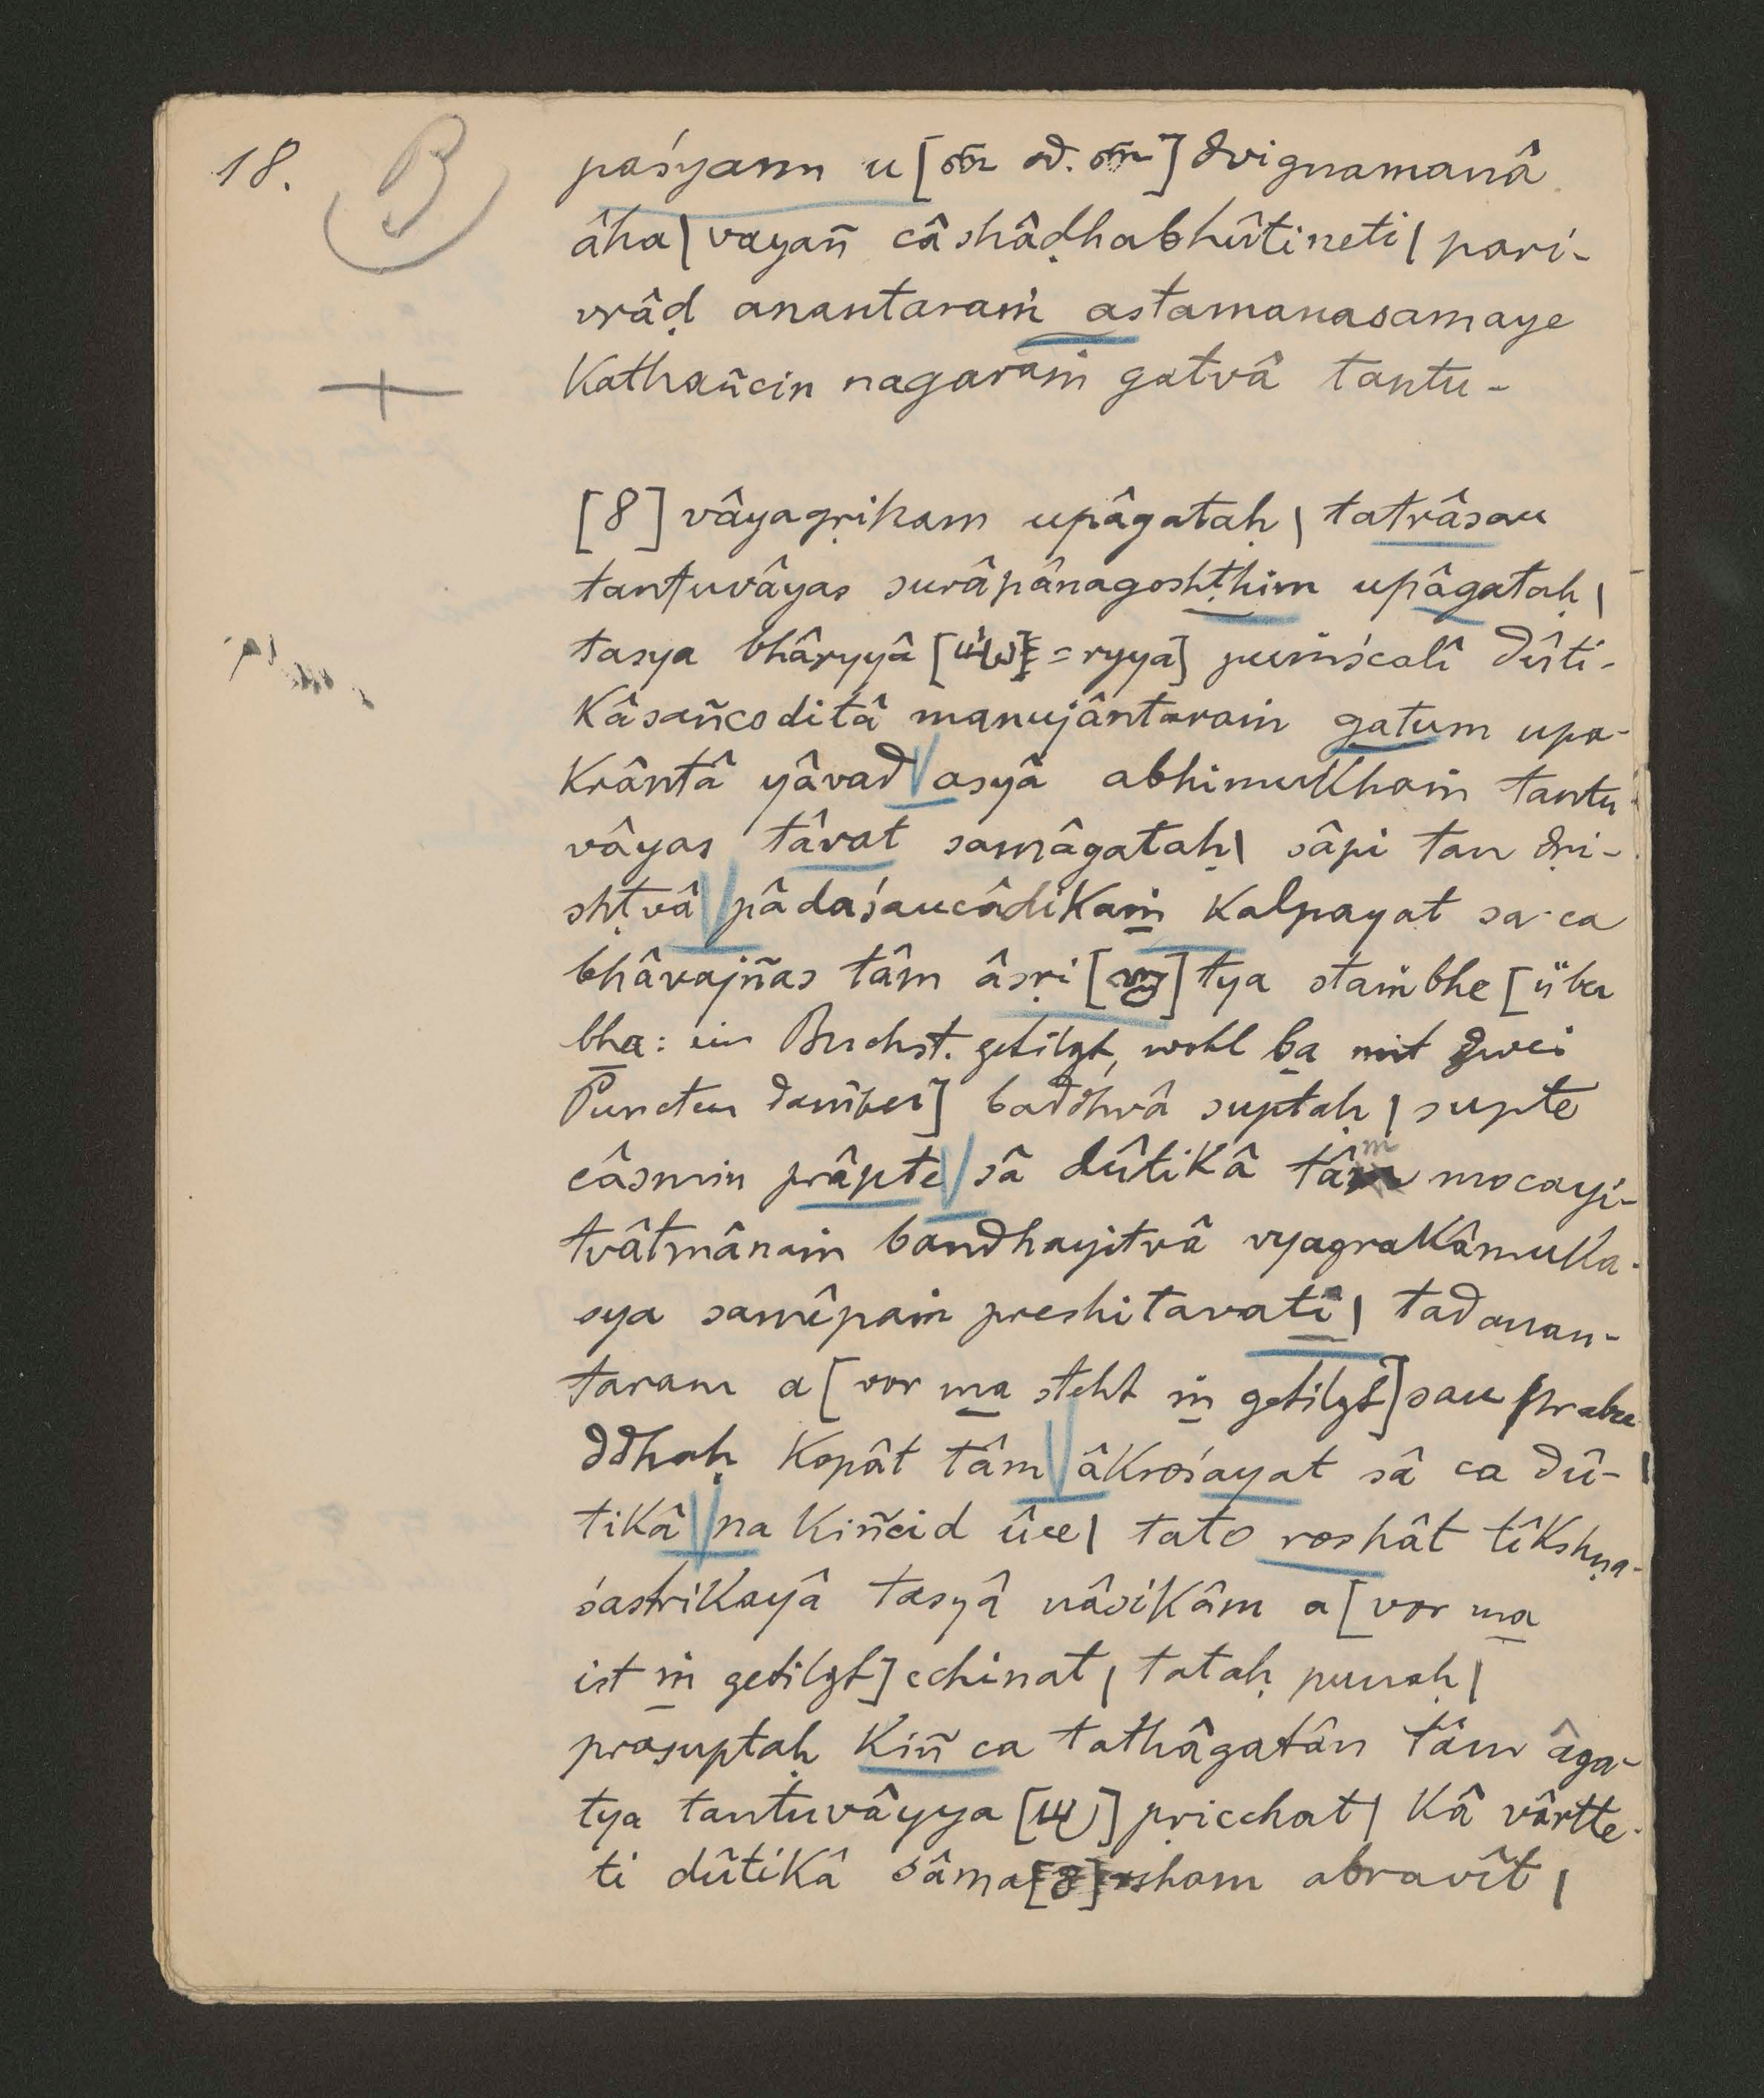 18. B
paśyann u [od.] dvignamanâ
âha | vayañ câshâḍhabhûtineti | pari-
vrâḍ anantaraṁ astamanasamaye
kathañcin nagaraṁ gatvâ tantu-
[8] vâyagṛikam upâgataḥ | tatrâsau
tantuvâyas surâpânagoshṭhim upâgataḥ |
tasya bhâryyâ [= ryya] puṁścalî dûti-
kâsañcoditâ manujântaraṁ gatum upa-
krântâ yâvad asyâ abhimukhaṁ tantu-
vâyas tâvat samâgataḥ | sâpi tan dṛi-
shṭvâ pâdaśaucâdikaṁ kalpayat sa ca
bhâvajñas tâm âsṛi [] tya staṁbhe [über
bha: ein Buchst. getilgt, wohl ba mit zwei
Puncten darüber] baddhvâ suptaḥ | supte
câsmin prâpte sâ dûtikâ tâm mocayi-
tvâtmânaṁ bandhayitvâ vyagrakâmuka-
sya samîpaṁ preshitavatî | tadanan-
taram a [vor ma steht ṁ getilgt] sau prabu
ddhaḥ kopât tâm âkrośayat sâ ca dû-
tikâ na kiñcid ûce | tato roshât tîkshṇa-
śastrikayâ tasyâ nâsikâm a [vor ma
ist ṁ getilgt] cchinat | tataḥ punaḥ |
prasuptaḥ kiñ ca tathâgatân tâm âga-
tya tantuvâyya [] pṛicchat | kâ vârtte-
ti dûtikâ sâma[]rsham abravît |